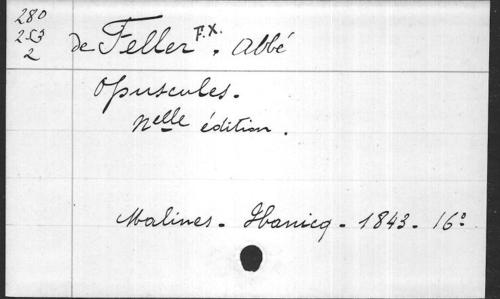 280
253
2
de Feller F.X. , Abbé
Opuscules.
Nelle édition.
Malines - Hanicq - 1843 - 16°